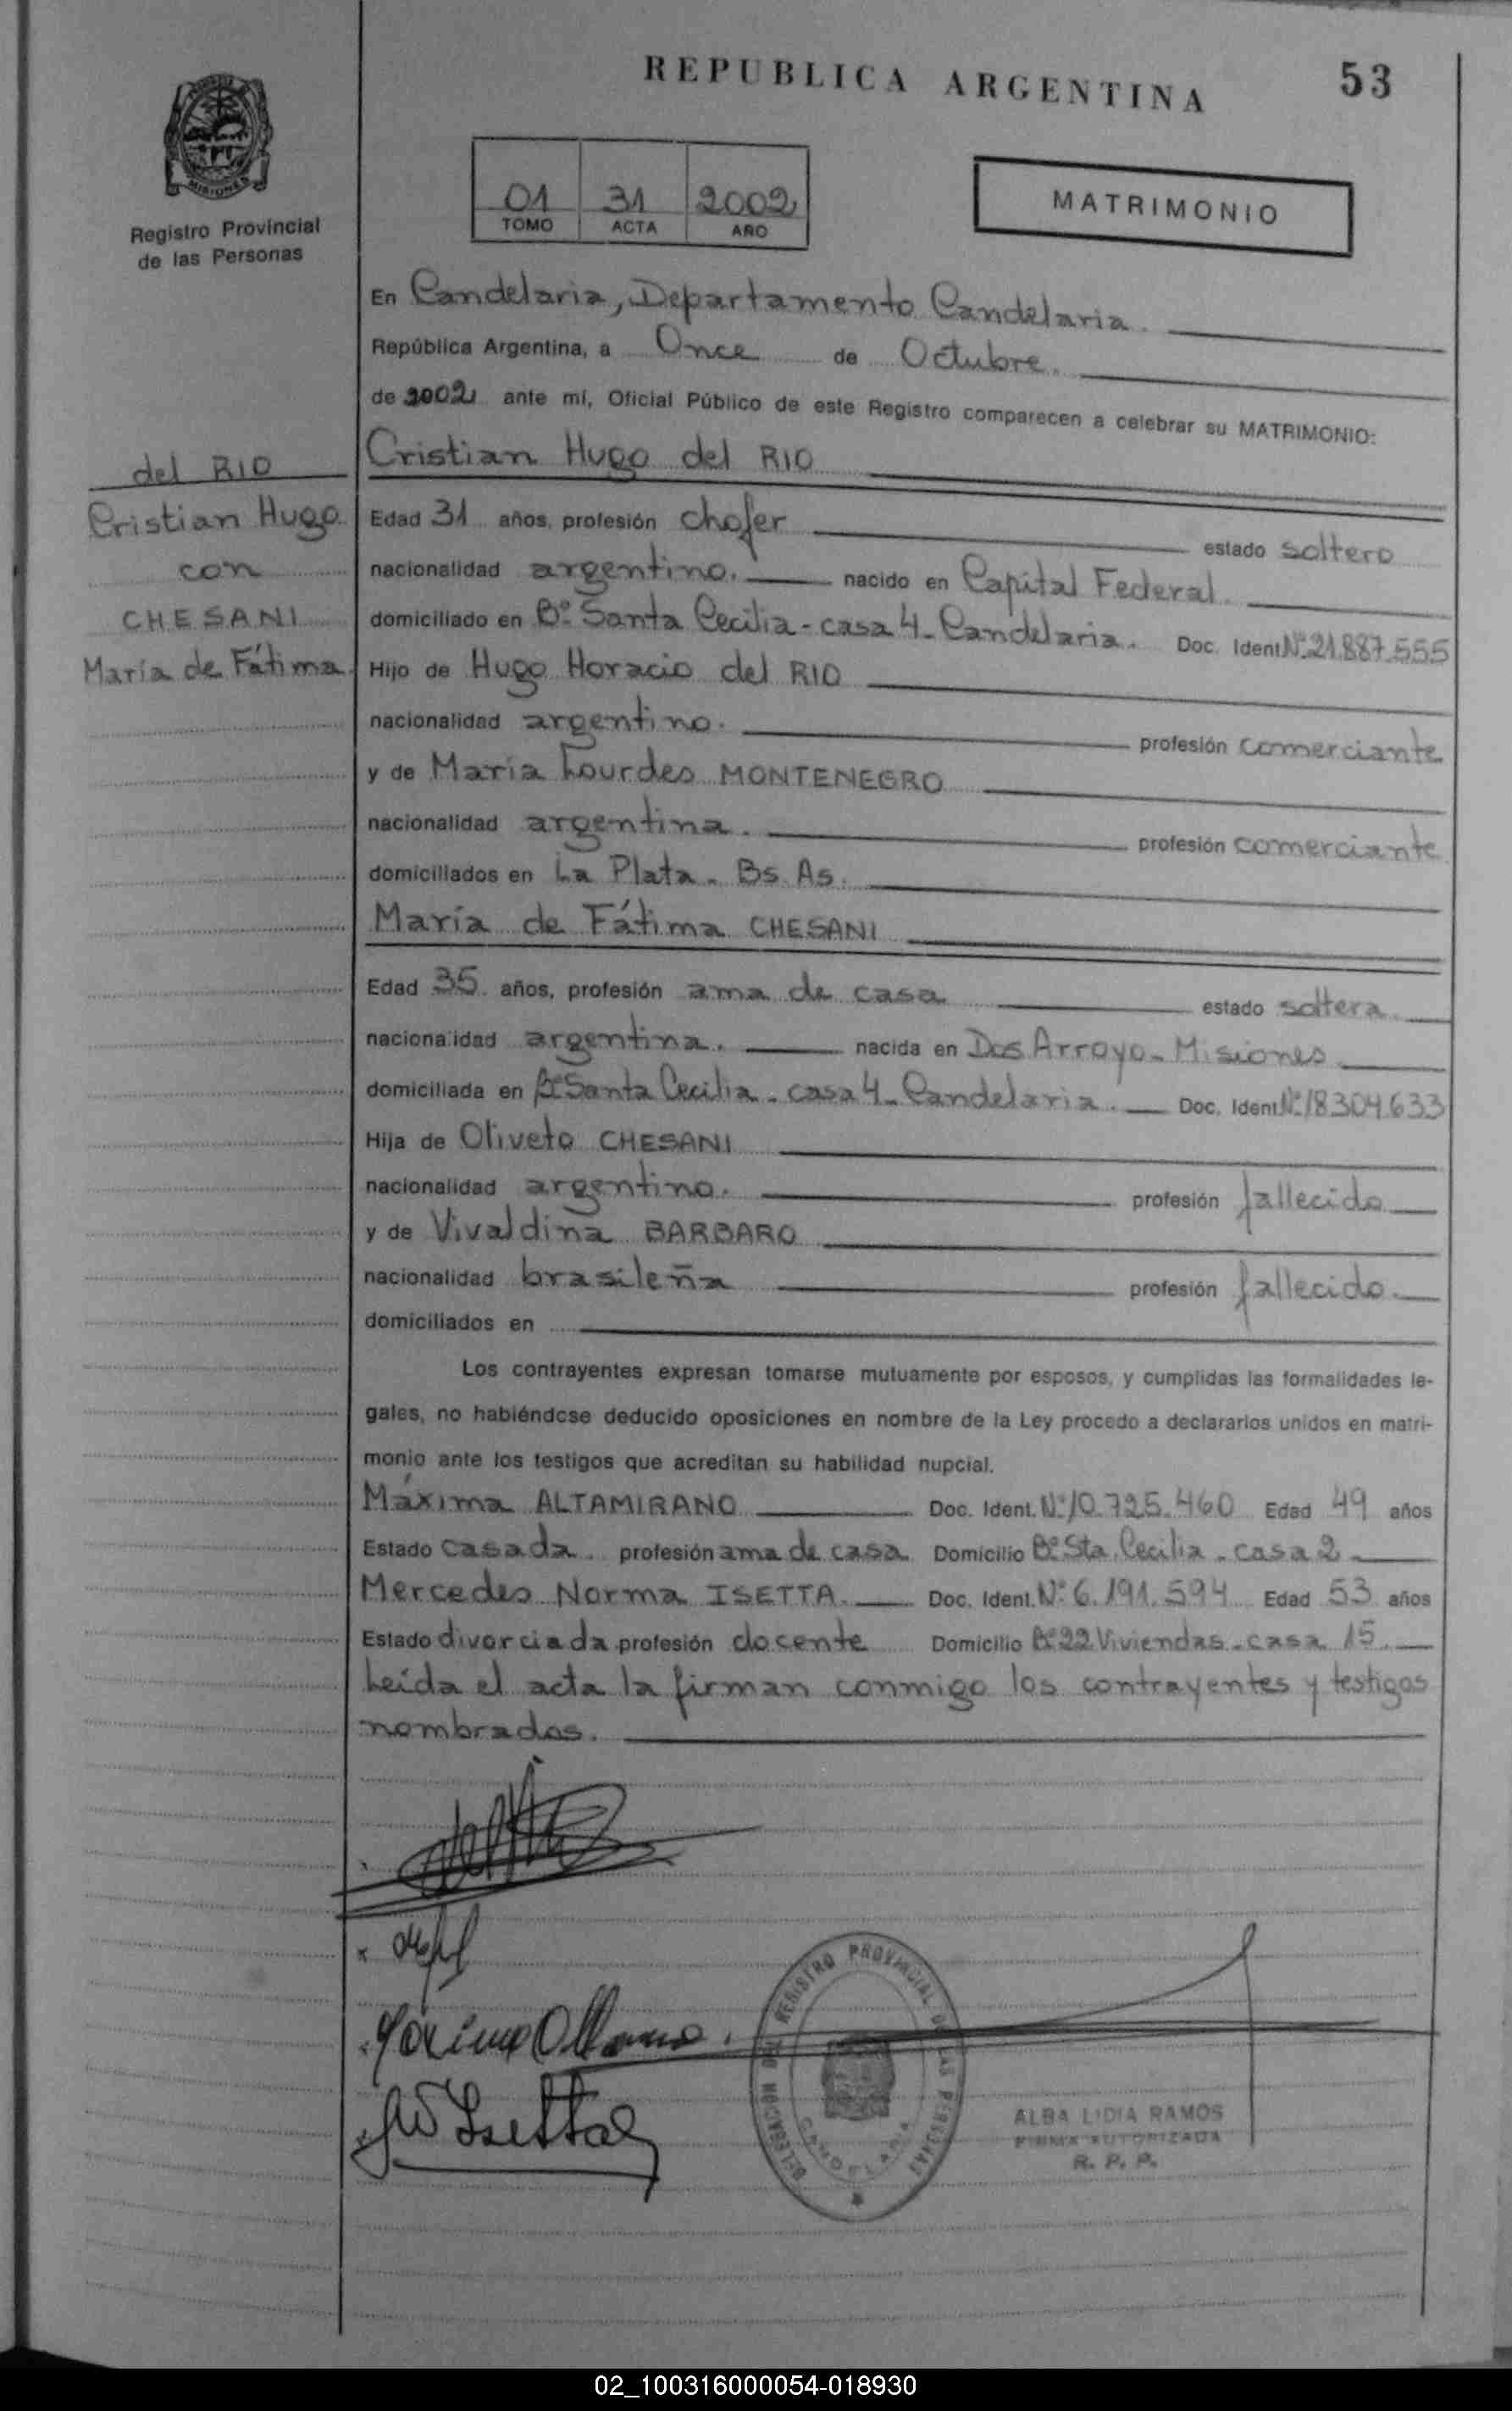 REPUBLICA ARGENTINA
53
MISIONES
Registro Provincial
de las Personas
01 31 2002
TOMO ACTA AÑO
MATRIMONIO
En Candelaria, Departamento Candelaria.
República Argentina, a Once de Octubre.
de 2002 ante mí, Oficial Público de este Registro comparecen a celebrar su MATRIMONIO:
del RIO
Cristian Hugo
con
CHESANI
María de Fátima
Cristian Hugo del RIO
Edad 31 años, profesión chofer estado soltero
nacionalidad argentino. nacido en Capital Federal.
domiciliado en Bº Santa Cecilia - casa 4 - Candelaria. Doc. Ident. Nº 21.887.555
Hijo de Hugo Horacio del RIO
nacionalidad argentino. profesión comerciante
y de María Lourdes MONTENEGRO
nacionalidad argentina. profesión comerciante
domiciliados en La Plata - Bs. As.
María de Fátima CHESANI
Edad 35 años, profesión ama de casa estado soltera
nacionalidad argentina. nacida en Dos Arroyo - Misiones
domiciliada en Bº Santa Cecilia - casa 4 - Candelaria. Doc. Ident. Nº 18304633
Hija de Oliveto CHESANI
nacionalidad argentino. profesión fallecido
y de Vivaldina BARBARO
nacionalidad brasileña profesión fallecido.
domiciliados en
Los contrayentes expresan tomarse mutuamente por esposos, y cumplidas las formalidades le-
gales, no habiéndose deducido oposiciones en nombre de la Ley procedo a declararlos unidos en matri-
monio ante los testigos que acreditan su habilidad nupcial.
Máxima ALTAMIRANO Doc. Ident. Nº 10.725.460 Edad 49 años
Estado casada. profesión ama de casa Domicilio Bº Sta. Cecilia - casa 2
Mercedes Norma ISETTA. Doc. Ident. Nº 6.191.594 Edad 53 años
Estado divorciada profesión docente Domicilio Bº 22 Viviendas - casa 15.
Leída el acta la firman conmigo los contrayentes y testigos
nombrados.
DELEGACION DEL REGISTRO PROVINCIAL DE LAS PERSONAS
CANDELARIA
ALBA LIDIA RAMOS
FIRMA AUTORIZADA
R. P. P.
02_100316000054-018930